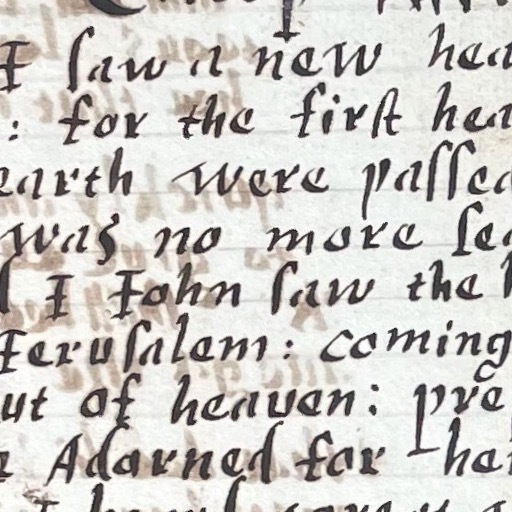 I ſaw a new hea
: for the firſt hea
earth were paſſed
was no more ſea
I Iohn ſaw the h
Ieruſalem: coming
ut of heauen: pre
Adorned for her